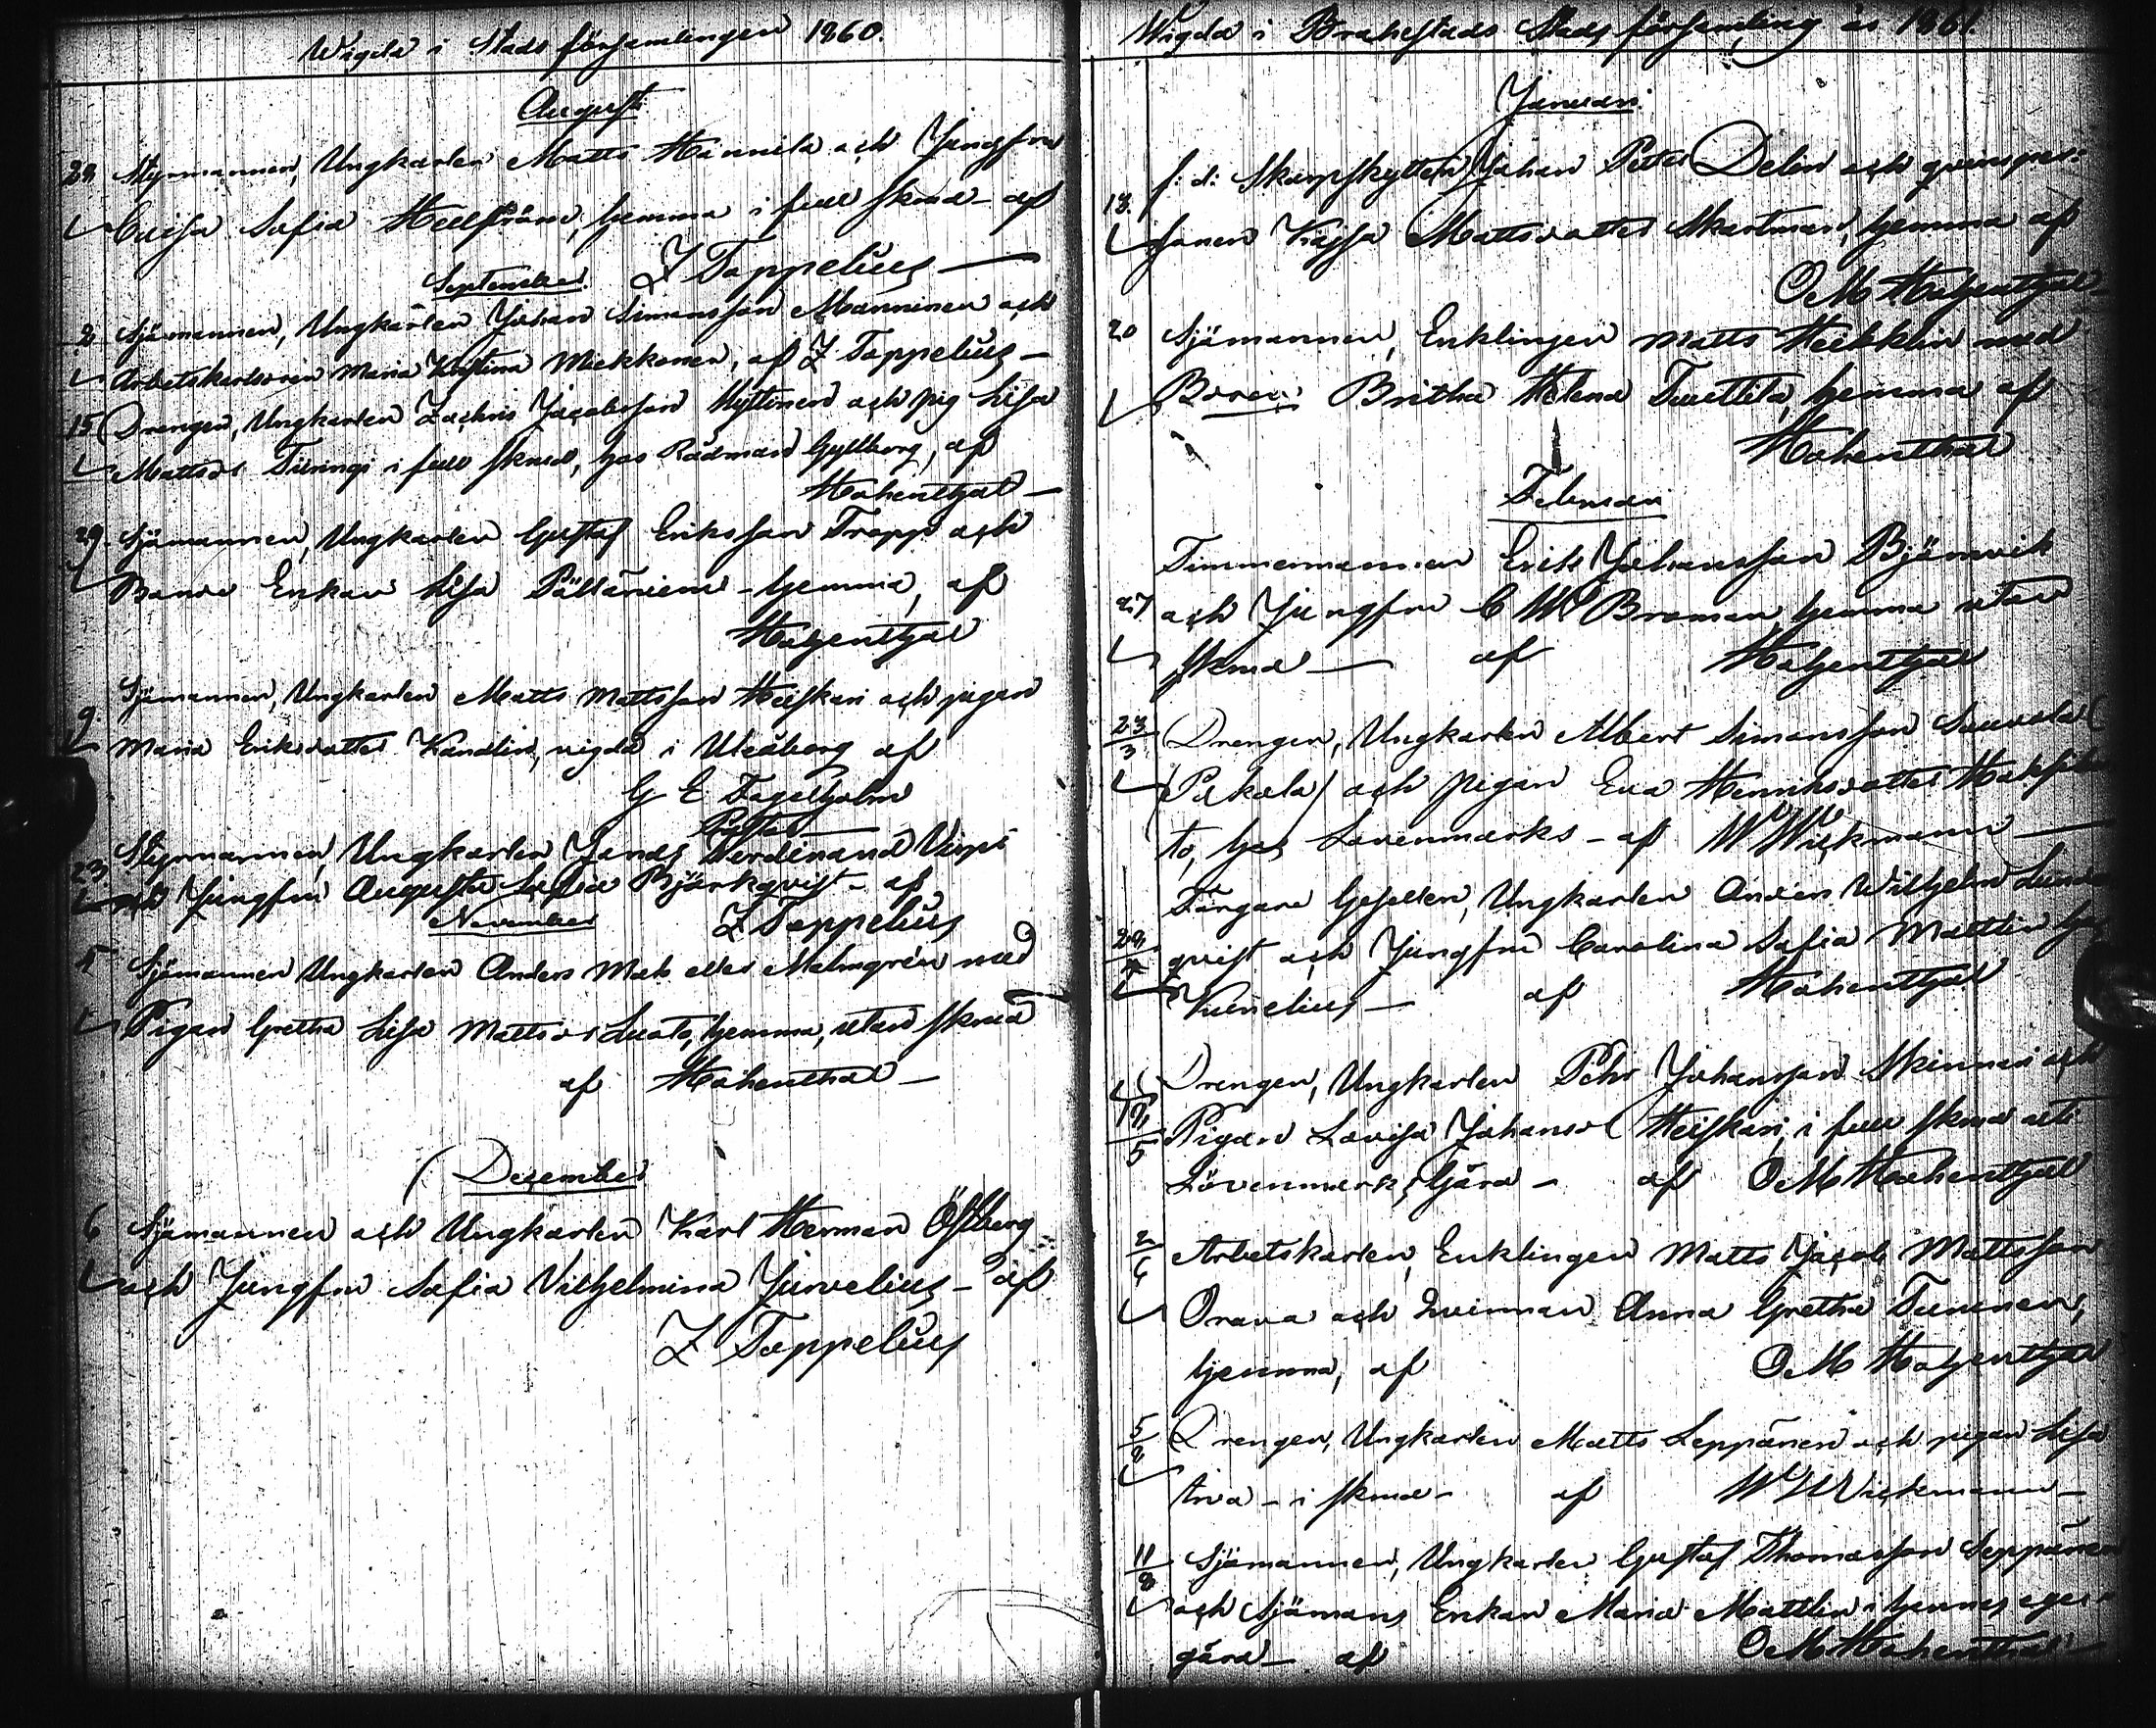 Wigda i Stads församlingen 1860.
Augusti
29 Styrmannen, Ungkarlen Matts Hannila och Jungfru
Cajsa Sofia Hellström, hemma i full skrud af
Z Toppelius
September
2 Sjömannen, Ungkarlen Johan Simonsson Manninen och
Arbetskarlsenkan Maria Kristina Miekkonen, af Z Toppelius
15 Drengen, Ungkarlen Zachris Jacobsson Hyttinen och pig Lisa
Mattsdr i full skrud, hos Rådman Gyllberg, af
Hohenthal
29. Sjömannen, Ungkarlen Gustaf Eriksson Trapp och
Bonde Enkan Lisa hemma, af
Hohenthal
9. Sjömannen, Ungkarlen Matts Mattsson Heiskari och pigan
Maria Eriksdotter Kandlin, vigda i Uleåborg af
G E Fagerholm
Pastor
23. Styrmannen, Ungkarlen Jonas Ferdinand Virpi
och Jungfru Augusta Sofia Björkqvist af
November Z Toppelius
5 Sjömannen Ungkarlen Anders Mak eller Malmgrén med
Pigan Gretha Lisa Mattsdr Luoto, hemma, utan skrud
af Hohenthal
December
6 Sjömannen och Ungkarlen Karl Herman Östberg
och Jungfru Sofia Vilhelmina Jurvelius af
Z Toppelius
Wigda i Brahestads Stads församling år 1861.
Januari
13. f: d: Skarpskytten Johan Petter Delin och qvinsper:
sonen Kajsa Mattsdotter Skartman, hemma af
O M Hohenthal
20 Sjömannen, Enklingen Matts Heikklin med
Britha Helena Tuettila, hemma af
Hohenthal
Februari
Timmermannen Erik Johansson Björnvik
27 och Jungfru C M Broman, hemma utan
skrud af Hohenthal
23/3 Drengen, Ungkarlen Albert Simonsson Sauvola
(Pokela) och pigan Eva Henriksdotter
to, hos Lovenmarks - af W Wickmann
Färgare Gesellen, Ungkarlen Anders Wilhelm Lund
29/4 qvist och Jungfru Carolina Sofia Mattlin hos
Kunelius af Hohenthal
Drengen, Ungkarlen Pehr Johansson Skinnari och
19/5 Pigan Lovisa Johansd Heiskari, i full skrud uti
Lövenmarks Gård - af O M Hohenthal
2/6 Arbetskarlen, Enklingen Matts Jacob Mattsson
Orava och Qvinnan Anna Gretha Tuunanen,
hemma, af O M Hohenthal
5/8 Drengen, Ungkarlen Matts Leppänen och pigan Lisa
i skrud - af W Wickmann
11/8 Sjömannen, Ungkarlen Gustaf Thomasson Seppänen
och Sjömans Enkan Maria Mattlin i hennes egen
gård - af O M Hohenthal